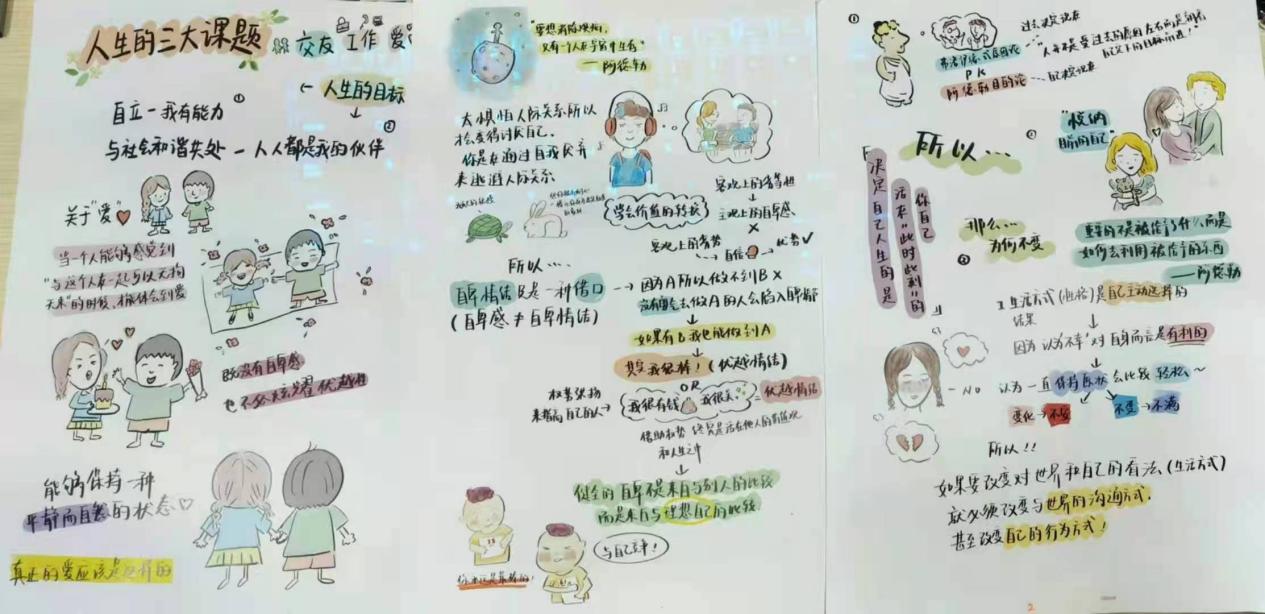 人生的三大课题
交友 工作 爱
← 人生的目标
自立一我有能力 ①
与社会和谐共处 — 人人都是我的伙伴 ②
关于"爱"
当一个人能够感觉到
"与这个人在一起可以无拘
无束"的时候,才能体会到爱
既没有自卑感
也不必去炫耀优越性
能够保持一种
平静而自然的状态
真正的爱应该是这样的
"要想消除烦恼,
只有一个人在宇宙中生存"
——阿德勒
太惧怕人际关系所以
才会变得讨厌自己.
你是在通过自我厌弃
来逃避人际关系
学会价值的转换
客观上的
主观上的自卑感
客观上的劣势
自信
优势✓
所以....
自卑情结只是一种借口
(自卑感≠自卑情结)
→ 因为A所以做不到B ×
没有勇气去做A的人会陷入自卑情结
如果有B我也能做到A
其实我很棒!(优越情结)
OR
权势张扬
来抬高自己的人→
我很有钱 我很美
优越情结
借助权势 终究是活在他人的价值观
和人生之中
健全的自卑不是来自与别人的比较
而是来自与理想自己的比较.
与自己竞争!
你永远是最棒的!
①
过去决定现在
弗洛伊德式原因论
PK
阿德勒目的论
自己决定现在
所以...
决定自己人生的是
活在"此时此刻"的
你自己
②
"接纳
所有的自己"
那么...
为何不变
③
重要的不是被给予了什么,而是
如何去利用被给予的东西
——阿德勒
生活方式(性格)是自己主动选择的
结果
因为认为"不幸"对自身而言是有利的
NO
认为一直保持原状会比较轻松、~
变化→不安
不变→不满
所以!!
如果要改变对世界和自己的看法、(生活方式)
就必须改变与世界的沟通方式.
甚至改变自己的行为方式!
2